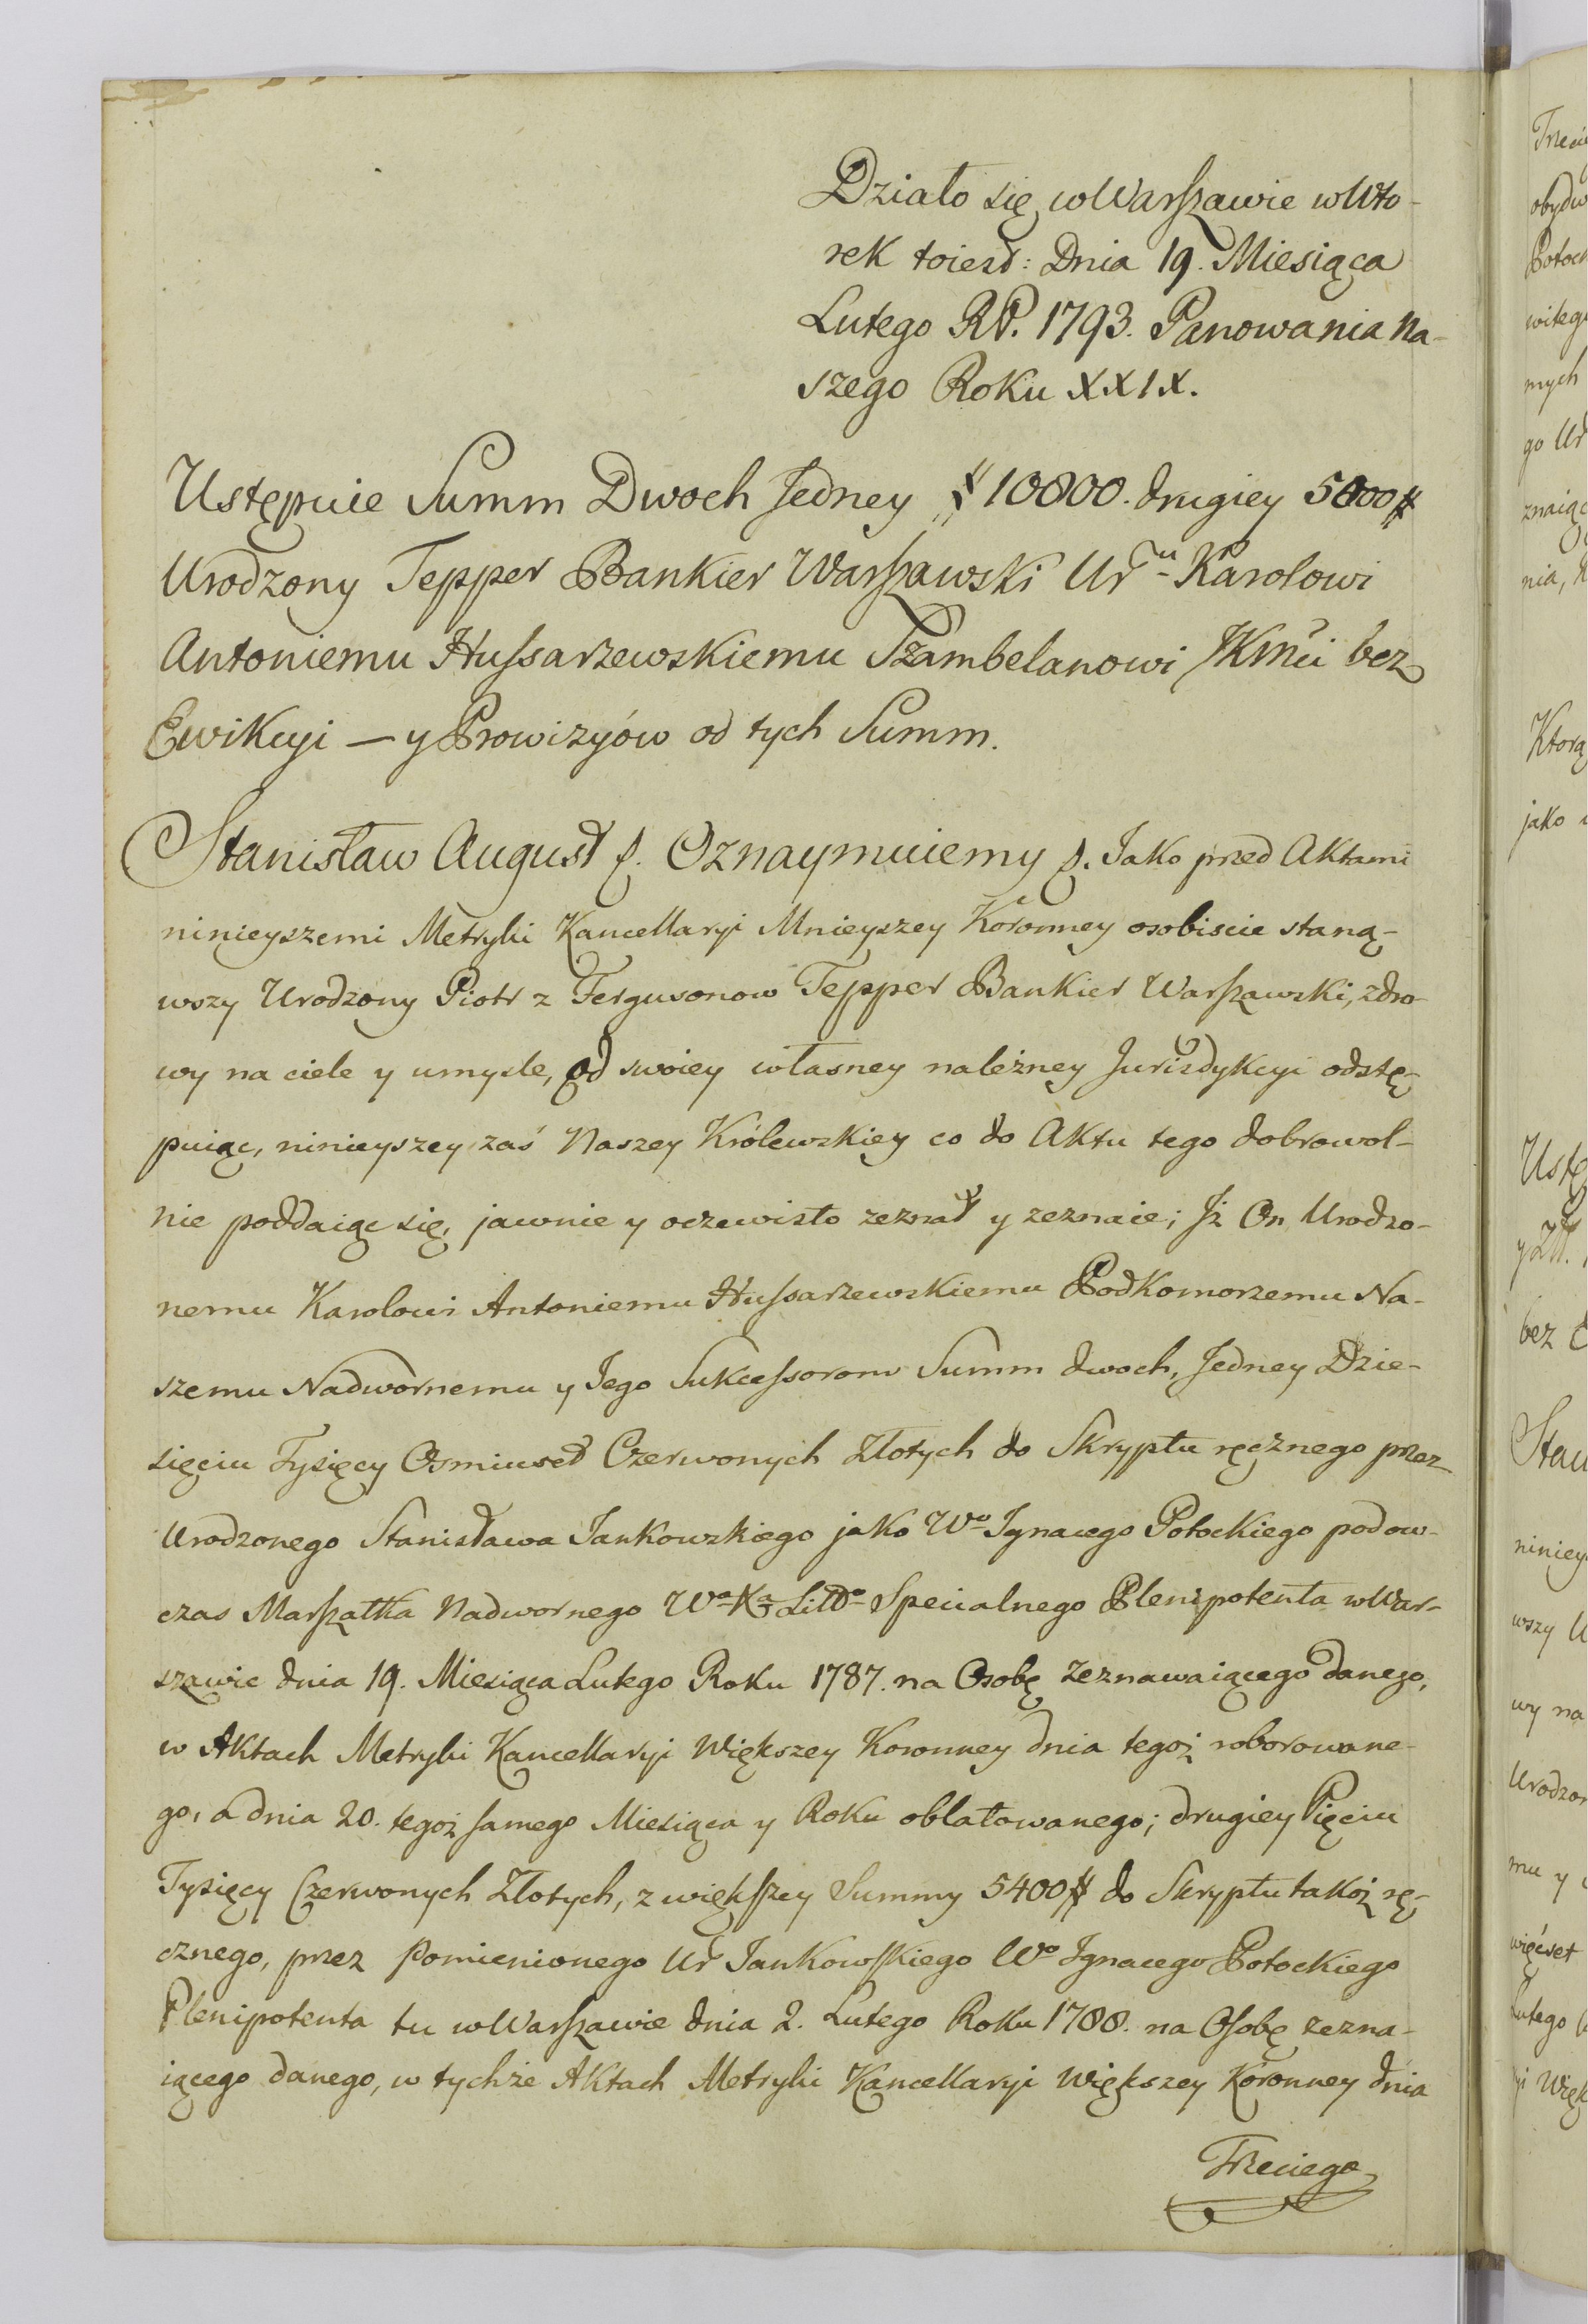 Działo się w Warszawie w Wto-
rek toiest: Dnia 19. Miesiąca
Lutego RP. 1793. Panowania Na-
szego Roku XXIX.
Ustępuie Summ Dwoch Jedney # 10800. drugiey 5000 #
Urodzony Tepper Bankier Warszawski Urmu Karolowi
Antoniemu Hussarzewskiemu Szambelanowi JKMci bez
Ewikcyi — y Prowizyów od tych Summ.
Stanisław August &. Oznaymuiemy &. Jako przed Aktami
ninieyszemi Metryki Kancellaryi Mnieyszey Koronney osobiscie staną-
wszy Urodzony Piotr z Fergusonow Tepper Bankier Warszawski, zdro-
wy na ciele y umysle, od swoiey własney należney Jurisdykcyi odstę-
puiąc, ninieyszey zaś Naszey Królewskiey co do Aktu tego dobrowol-
nie poddaiąc się, jawnie y oczewisto zeznał y zeznaie; Jż On Urodzo-
nemu Karolowi Antoniemu Hussarzewskiemu Podkomorzemu Na-
szemu Nadwornemu y Jego Sukcessorom Summ dwoch, Jedney Dzie-
sięciu Tysięcy Osmiuset Czerwonych Złotych do Skryptu ręcznego przez
Urodzonego Stanisława Jankowskiego jako Wo Jgnacego Potockiego podow-
czas Marszałka Nadwornego Wo Xa Littgo Specialnego Plenipotenta w War-
szawie dnia 19. Miesiąca Lutego Roku 1787. na Osobę Zeznawaiącego danego,
w Aktach Metryki Kancellaryi Większey Koronney dnia tegoż roborowane-
go, a dnia 20. tegoż samego Miesiąca y Roku oblatowanego; drugiey Pięciu
Tysięcy Czerwonych Złotych, z większey Summy 5400 # do Skryptu takoż rę-
cznego, przez Pomienionego Ur Jankowskiego Wo Jgnacego Potockiego
Plenipotenta tu w Warszawie dnia 2. Lutego Roku 1788. na Osobę zezna-
iącego danego, w tychże Aktach Metryki Kancellaryi Większey Koronney dnia
Trzeciego